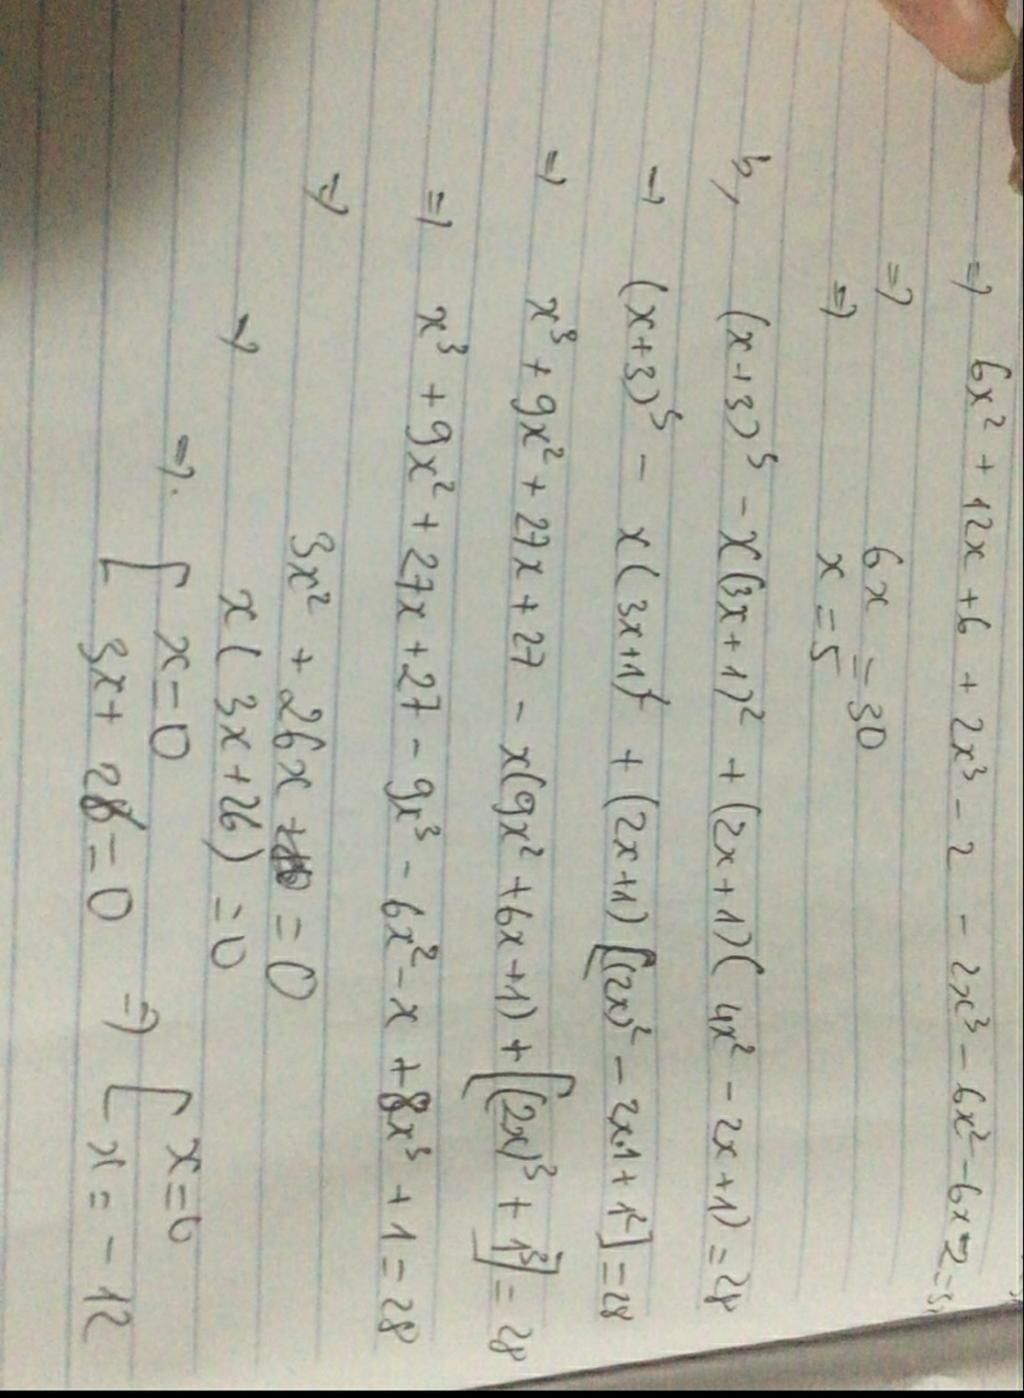 => 6x² + 12x + 6 + 2x³ - 2 - 2x³ - 6x² - 6x - 2 =
=> 6x = 30
=> x = 5
(x+3)³ - x(3x+1)² + (2x+1)(4x² - 2x + 1) = 28
=> (x+3)³ - x(3x+1)² + (2x+1)[(2x)² - 2x.1 + 1²] = 28
=> x³ + 9x² + 27x + 27 - x(9x² + 6x + 1) + [(2x)³ + 1³] = 28
=> x³ + 9x² + 27x + 27 - 9x³ - 6x² - x + 8x³ + 1 = 28
=> 3x² + 26x = 0
=> x(3x + 26) = 0
=> [ x = 0 => [ x = 0
[ 3x + 26 = 0 [ x = - 12